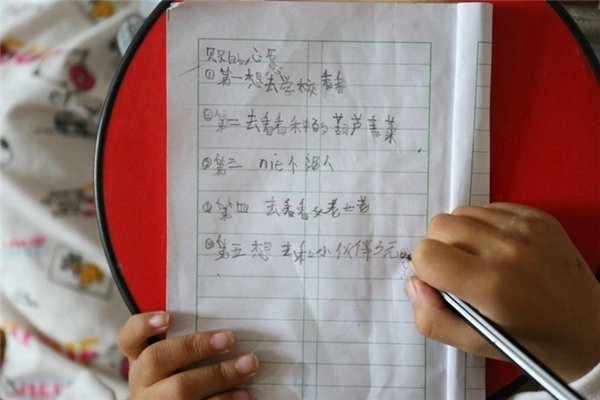 贝贝的心愿
①第一想去学校看看
②第二去看看禾中的葫芦青菜
③第三 nie个泥人
④第四 去看看
⑤第五想 去和小伙伴多元